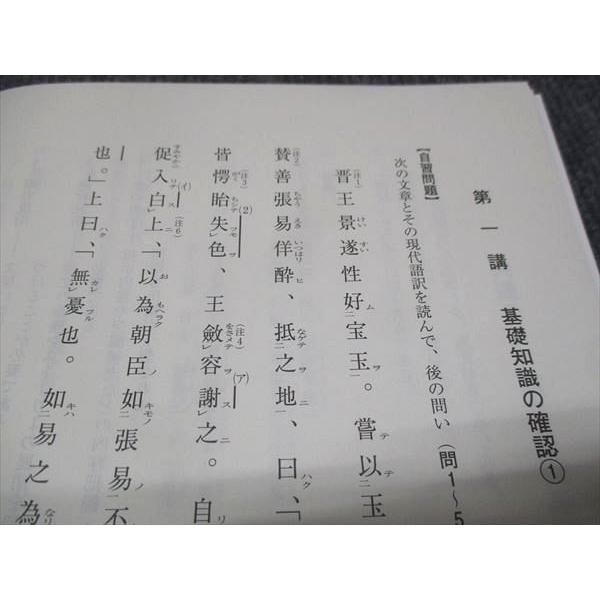 第一講 基礎知識の確認①
【自習問題】
次の文章とその現代語訳を読んで、後の問い(問1〜5
晋王景遂性好宝玉。嘗以玉
賛善張易佯酔、抵之地、曰、「
皆愕眙失色、王斂容謝之。自
促入白上、「以為朝臣如張易不
也。」上曰、「無憂也。如易之為